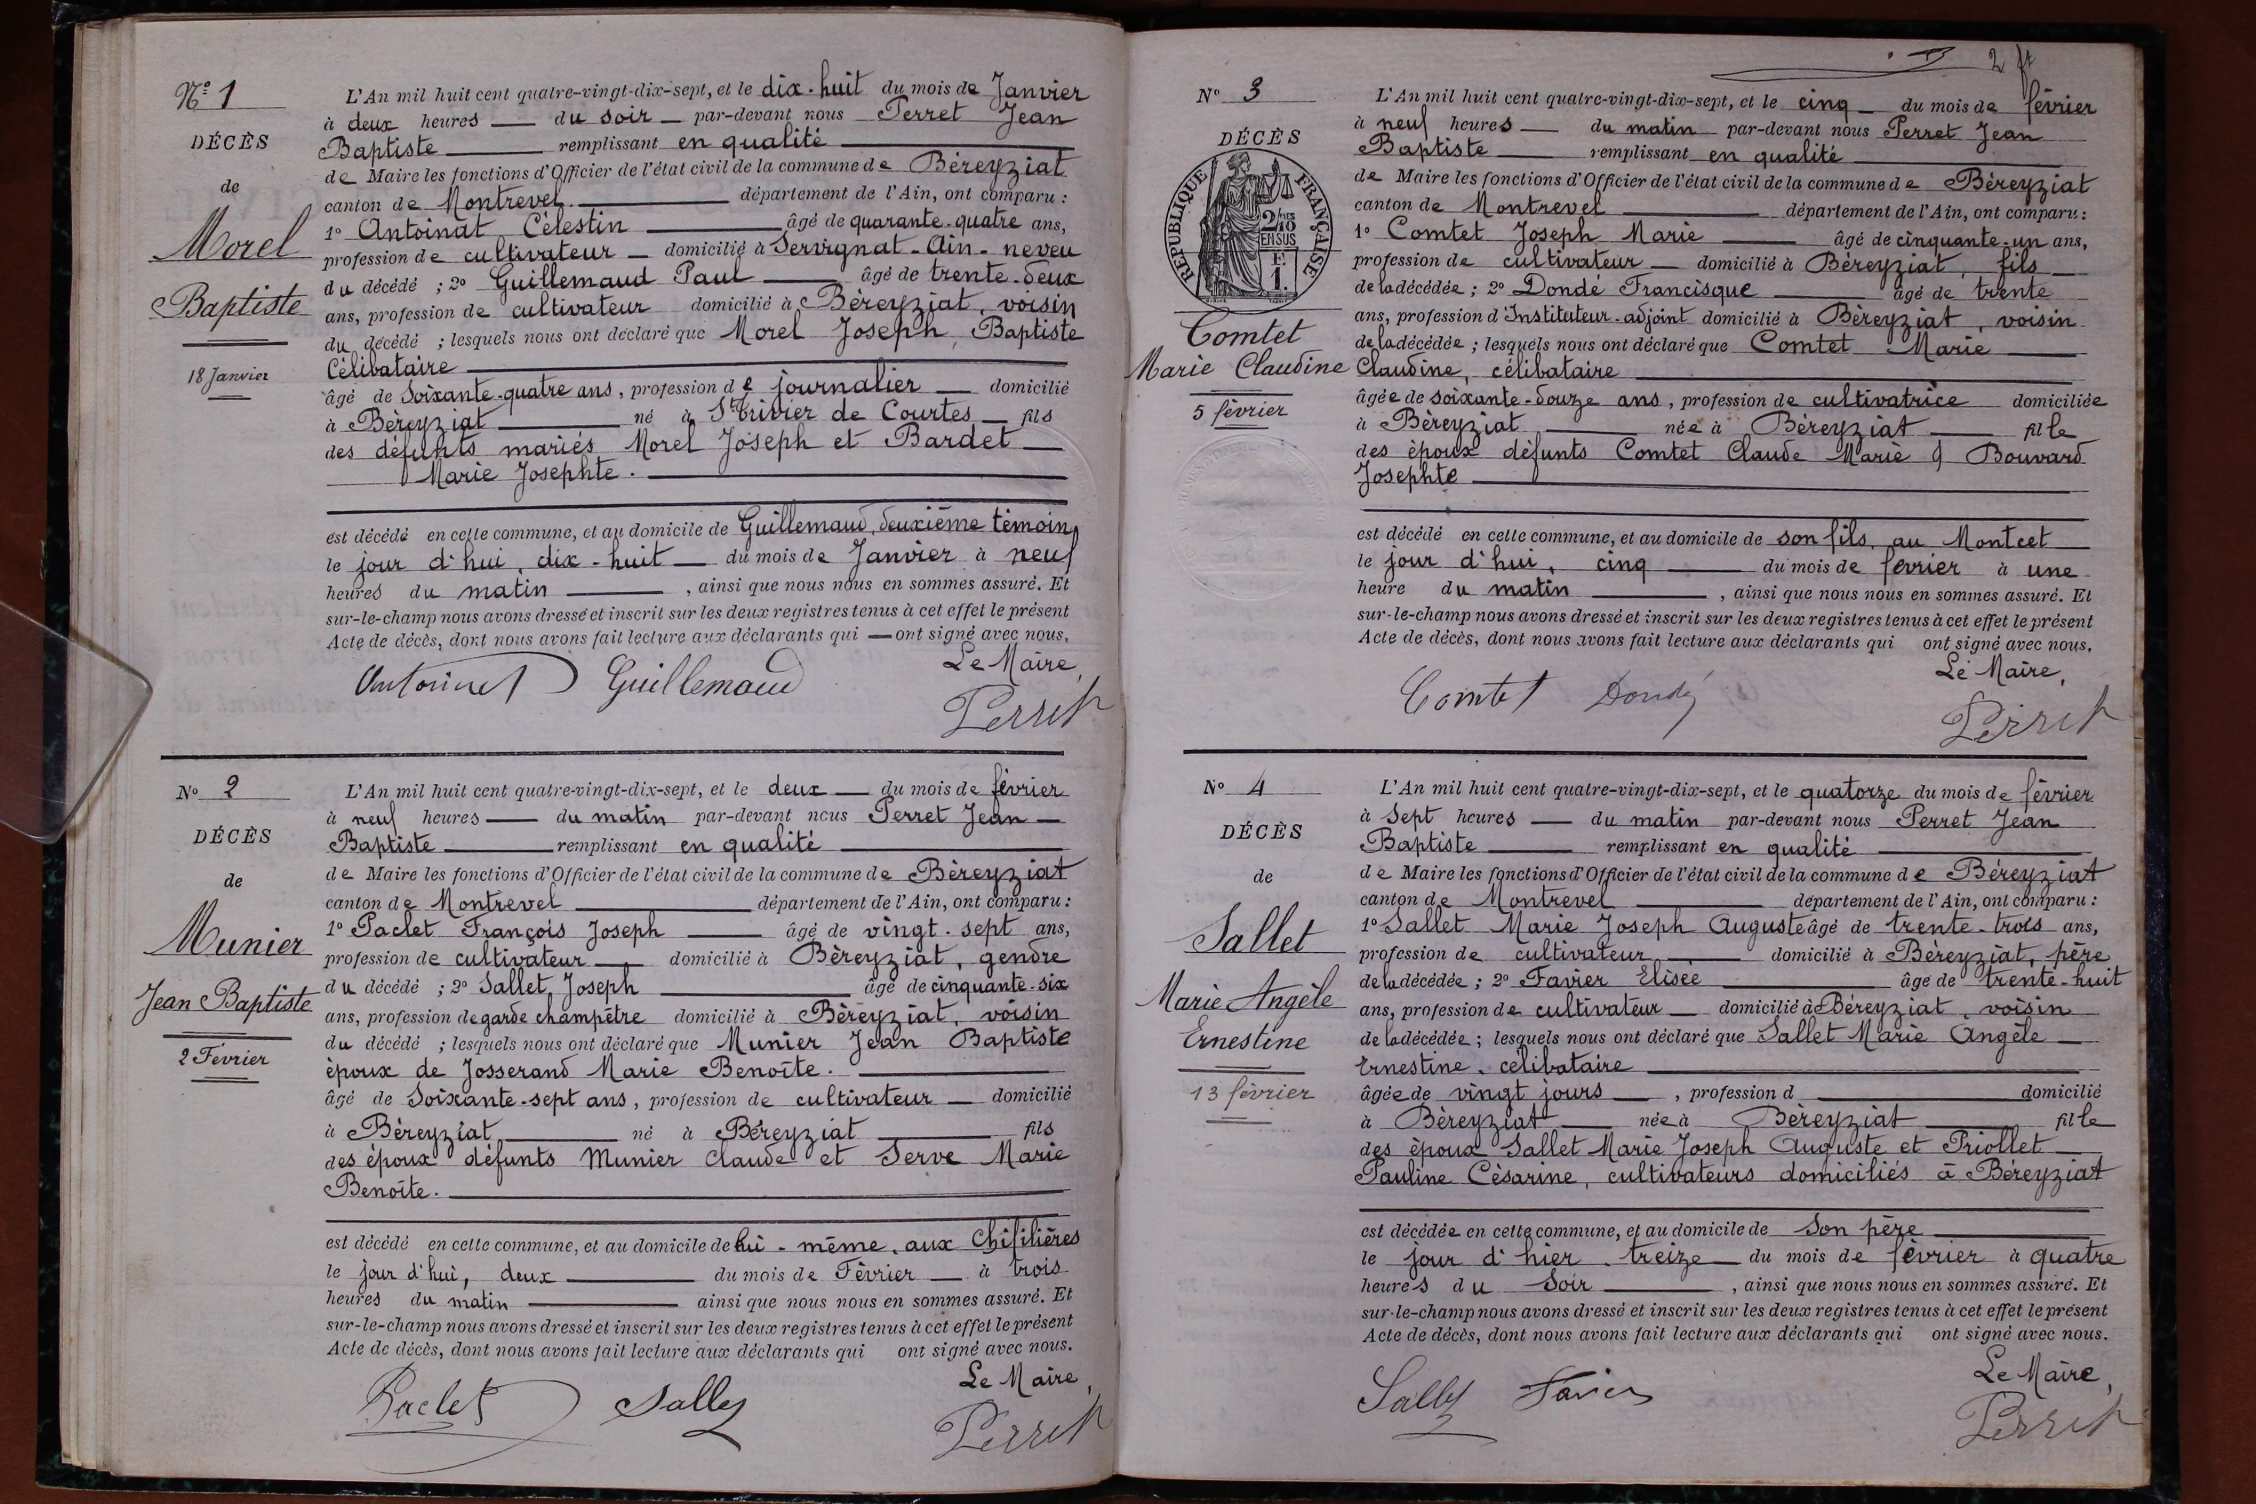 Nº 1
DÉCÈS
de
Morel
Baptiste
18 Janvier
L'An mil huit cent quatre-vingt-dix-sept, et le dix-huit du mois de Janvier
à deux heures du soir par-devant nous Perret Jean
Baptiste remplissant en qualité
de Maire les fonctions d'Officier de l'état civil de la commune de Béreyziat
canton de Montrevel département de l'Ain, ont comparu :
1º Antoinat Célestin âgé de quarante-quatre ans,
profession de cultivateur domicilié à Servignat-Ain-neveu
du décédé ; 2º Guillemaud Paul âgé de trente-deux
ans, profession de cultivateur domicilié à Béreyziat, voisin
du décédé ; lesquels nous ont déclaré que Morel Joseph, Baptiste
Célibataire
âgé de Soixante-quatre ans, profession de journalier domicilié
à Béreyziat né à St Trivier de Courtes fils
des défunts mariés Morel Joseph et Bardet
Marie Josephte.
est décédé en cette commune, et au domicile de Guillemaud, deuxième témoin,
le jour d'hui, dix-huit du mois de Janvier à neuf
heures du matin, ainsi que nous nous en sommes assuré. Et
sur-le-champ nous avons dressé et inscrit sur les deux registres tenus à cet effet le présent
Acte de décès, dont nous avons fait lecture aux déclarants qui — ont signé avec nous.
Le Maire,
Antoinat Guillemaud
Perret
Nº 2
DÉCÈS
de
Munier
Jean Baptiste
2 Février
L'An mil huit cent quatre-vingt-dix-sept, et le deux du mois de février
à neuf heures du matin par-devant nous Perret Jean
Baptiste remplissant en qualité
de Maire les fonctions d'Officier de l'état civil de la commune de Béreyziat
canton de Montrevel département de l'Ain, ont comparu :
1º Paclet François Joseph âgé de vingt-sept ans,
profession de cultivateur domicilié à Béreyziat, gendre
du décédé ; 2º Sallet, Joseph âgé de cinquante-six
ans, profession de garde champêtre domicilié à Béreyziat, voisin
du décédé ; lesquels nous ont déclaré que Munier Jean Baptiste
époux de Josserand Marie Benoîte.
âgé de Soixante-sept ans, profession de cultivateur domicilié
à Béreyziat né à Béreyziat fils
des époux défunts Munier Claude et Serve Marie
Benoîte.
est décédé en cette commune, et au domicile de lui-même, aux Chifilières
le jour d'hui, deux du mois de Février à trois
heures du matin ainsi que nous nous en sommes assuré. Et
sur-le-champ nous avons dressé et inscrit sur les deux registres tenus à cet effet le présent
Acte de décès, dont nous avons fait lecture aux déclarants qui ont signé avec nous.
Le Maire,
Paclet Sallet
Perret
2 ft
Nº 3
DÉCÈS
RÉPUBLIQUE FRANÇAISE
2/10 EN SUS
1F
Comtet
Marie Claudine
5 février
L'An mil huit cent quatre-vingt-dix-sept, et le cinq du mois de février
à neuf heures du matin par-devant nous Perret Jean
Baptiste remplissant en qualité
de Maire les fonctions d'Officier de l'état civil de la commune de Béreyziat
canton de Montrevel département de l'Ain, ont comparu :
1º Comtet Joseph Marie âgé de cinquante-un ans,
profession de cultivateur domicilié à Béreyziat, fils
de la décédée ; 2º Dondé Francisque âgé de trente
ans, profession d'Instituteur-adjoint domicilié à Béreyziat, voisin
de la décédée ; lesquels nous ont déclaré que Comtet Marie
Claudine, célibataire
âgée de soixante-douze ans, profession de cultivatrice domiciliée
à Béreyziat née à Béreyziat fille
des époux défunts Comtet Claude Marie & Bouvard
Josephte
est décédé en cette commune, et au domicile de son fils, au Montcet
le jour d'hui, cinq du mois de février à une
heure du matin, ainsi que nous nous en sommes assuré. Et
sur-le-champ nous avons dressé et inscrit sur les deux registres tenus à cet effet le présent
Acte de décès, dont nous avons fait lecture aux déclarants qui ont signé avec nous.
Le Maire,
Comtet Dondé
Perret
Nº 4
DÉCÈS
de
Sallet
Marie Angèle
Ernestine
13 février
L'An mil huit cent quatre-vingt-dix-sept, et le quatorze du mois de février
à Sept heures du matin par-devant nous Perret Jean
Baptiste remplissant en qualité
de Maire les fonctions d'Officier de l'état civil de la commune de Béreyziat
canton de Montrevel département de l'Ain, ont comparu :
1º Sallet Marie Joseph Auguste âgé de trente-trois ans,
profession de cultivateur domicilié à Béreyziat, père
de la décédée ; 2º Favier Elisée âgé de trente-huit
ans, profession de cultivateur domicilié à Béreyziat, voisin
de la décédée ; lesquels nous ont déclaré que Sallet Marie Angèle
Ernestine, célibataire
âgée de vingt jours, profession d domicilié
à Béreyziat née à Béreyziat fille
des époux Sallet Marie Joseph Auguste et Priollet
Pauline Césarine, cultivateurs domiciliés à Béreyziat
est décédée en cette commune, et au domicile de Son père
le jour d'hier treize du mois de février à quatre
heures du Soir, ainsi que nous nous en sommes assuré. Et
sur-le-champ nous avons dressé et inscrit sur les deux registres tenus à cet effet le présent
Acte de décès, dont nous avons fait lecture aux déclarants qui ont signé avec nous.
Le Maire,
Sallet Favier
Perret